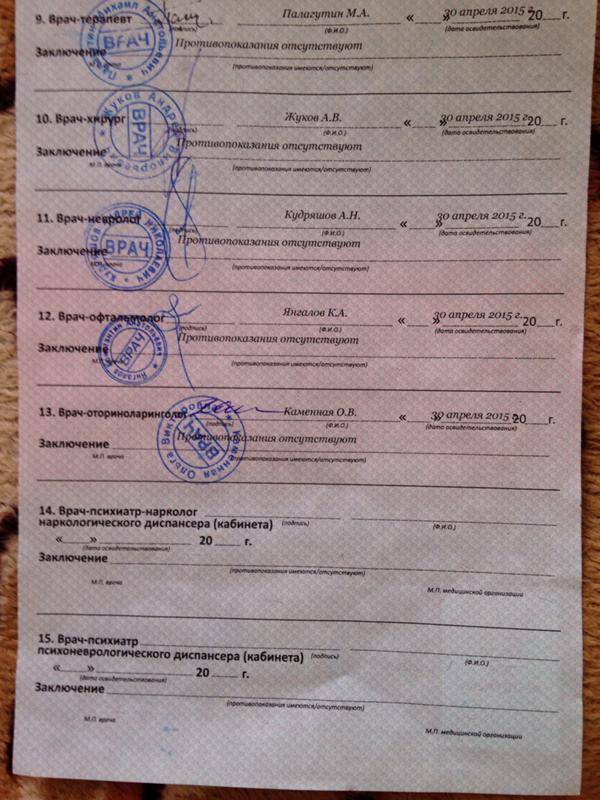 9. Врач-терапевт Палагутин М.А. «___» 30 апреля 2015 г. 20__ г.
(Ф.И.О.) (дата освидетельствования)
Заключение Противопоказания отсутствуют
(противопоказания имеются/отсутствуют)
ВРАЧ
10. Врач-хирург Жуков А.В. «___» 30 апреля 2015 г. 20__ г.
(подпись) (Ф.И.О.) (дата освидетельствования)
Заключение Противопоказания отсутствуют
М.П. врача (противопоказания имеются/отсутствуют)
ВРАЧ
11. Врач-невролог Кудряшов А.Н. «___» 30 апреля 2015 г. 20__ г.
(подпись) (Ф.И.О.) (дата освидетельствования)
Заключение Противопоказания отсутствуют
М.П. врача (противопоказания имеются/отсутствуют)
ВРАЧ
12. Врач-офтальмолог Янгалов К.А. «___» 30 апреля 2015 г. 20__ г.
(подпись) (Ф.И.О.) (дата освидетельствования)
Заключение Противопоказания отсутствуют
М.П. врача (противопоказания имеются/отсутствуют)
ВРАЧ
13. Врач-оториноларинголог Каменная О.В. «___» 30 апреля 2015 г. 20__ г.
(подпись) (Ф.И.О.) (дата освидетельствования)
Заключение Противопоказания отсутствуют
М.П. врача (противопоказания имеются/отсутствуют)
Каменная Ольга Викторовна ВРАЧ
14. Врач-психиатр-нарколог
наркологического диспансера (кабинета) (подпись) (Ф.И.О.)
«____» ____________ 20 ____ г.
(дата освидетельствования)
Заключение
(противопоказания имеются/отсутствуют)
М.П. врача М.П. медицинской организации
15. Врач-психиатр
психоневрологического диспансера (кабинета) (подпись) (Ф.И.О.)
«____» ____________ 20 ____ г.
(дата освидетельствования)
Заключение
(противопоказания имеются/отсутствуют)
М.П. врача М.П. медицинской организации